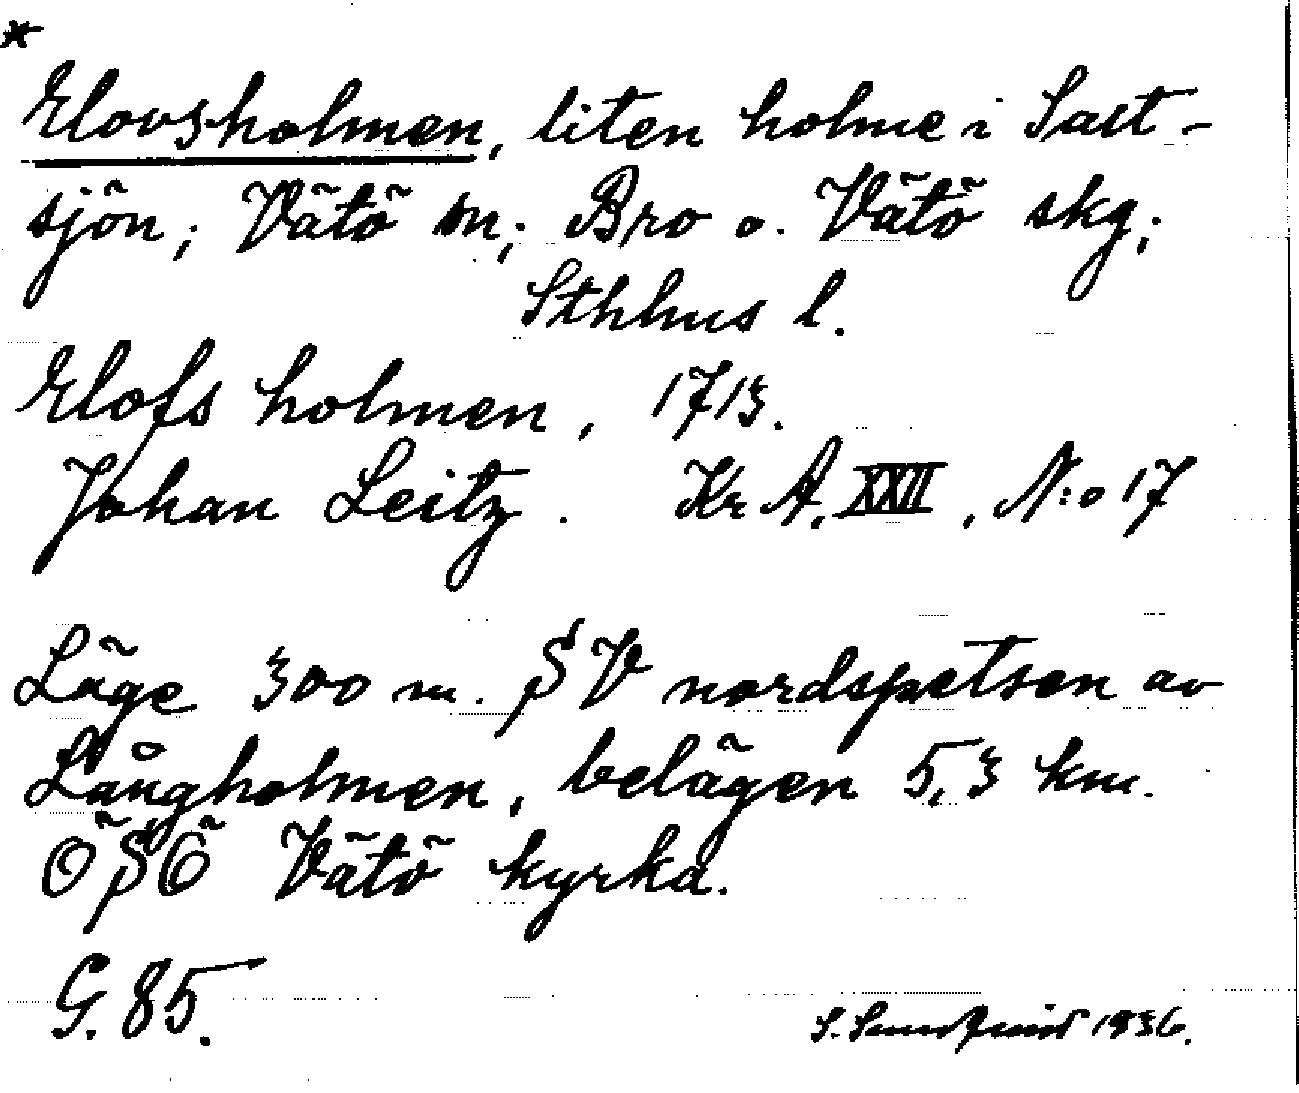 *
Elovsholmen, liten holme i Salt-
sjön; Vätö sn; Bro o. Vätö skg;
Sthhus l.
Elofs holmen, 1713.
Johan Leitz. Kr A, XXII, N:o 17
Läge 300 m. SV nordspetsen av
Långholmen, belägen 5,3 km.
ÖSÖ Vätö kyrka.
G. 85.
S. Sundqvist 1936.